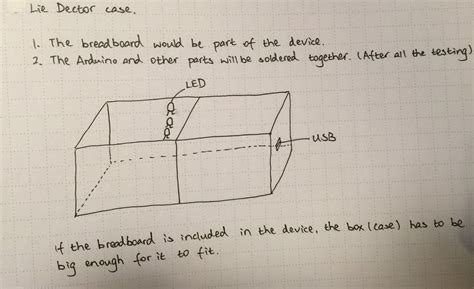 Lie Dector case.
1. The breadboard would be part of the device.
2. The Arduino and other parts will be soldered together. (After all the testing)
LED
USB
if the breadboard is included in the device, the box (case) has to be
big enough for it to fit.